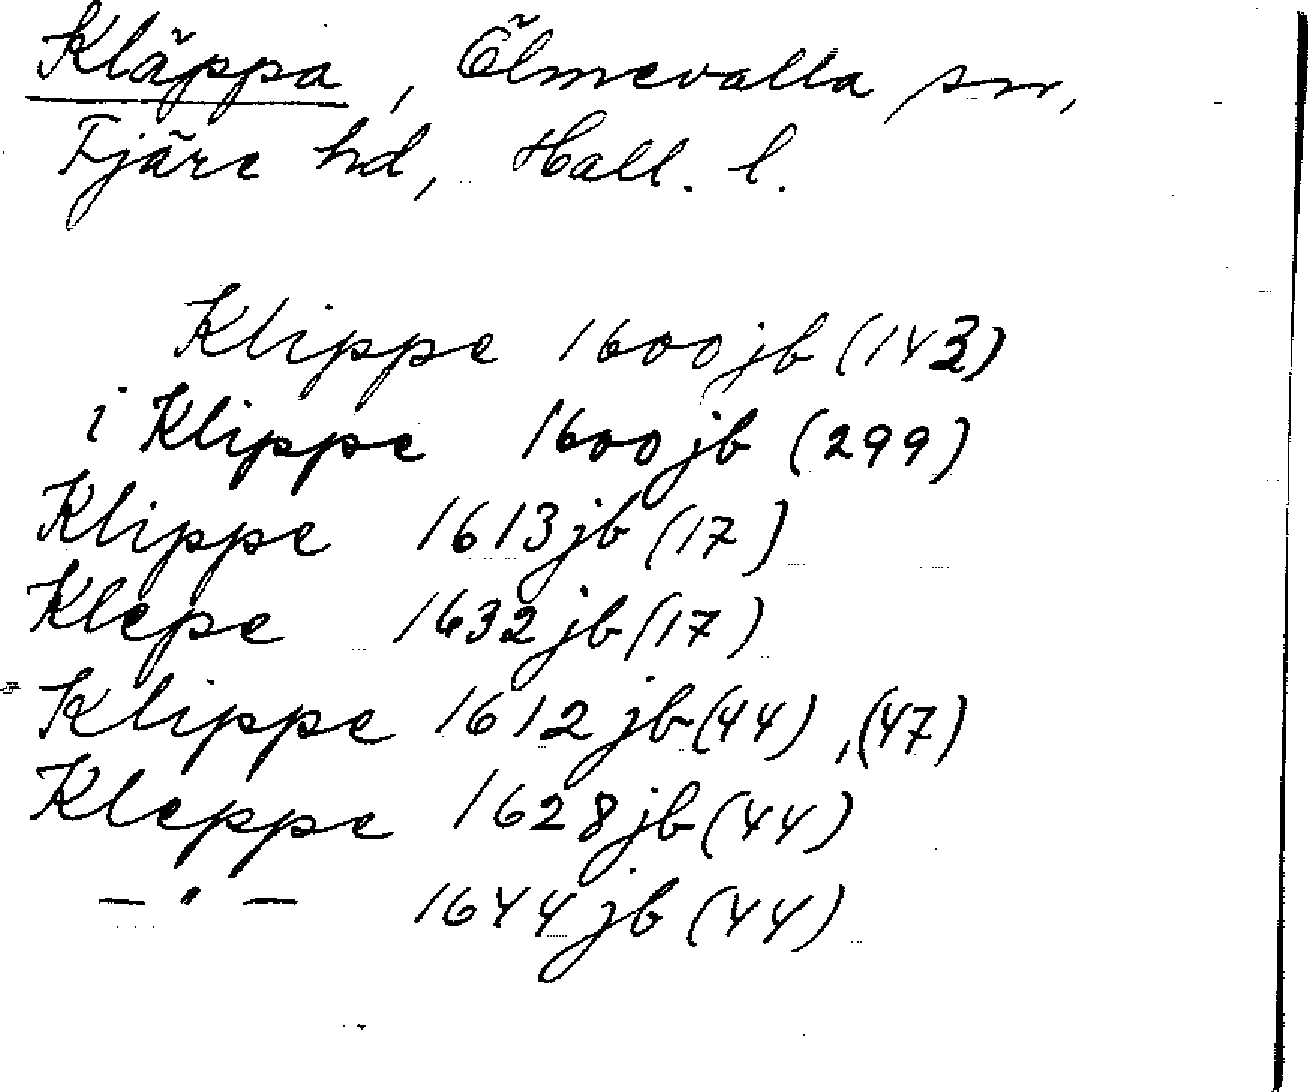 Kläppa, Ölmevalla sn,
Fjäre hd, Hall. l.
Klippe 1600 jb (143)
i Klippe 1600 jb (299)
Klippe 1613 jb (17)
Klepe 1632 jb (17)
Klippe 1612 jb (44), (47)
Kleppe 1628 jb (44)
— " — 1644 jb (44)